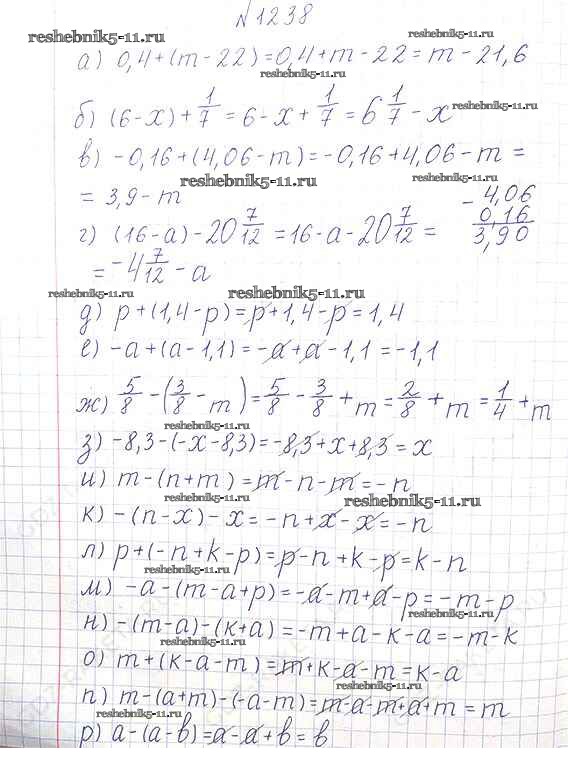 №1238
reshebnik5-11.ru
а) 0,4+(m-22)=0,4+m-22=m-21,6
reshebnik5-11.ru
б) (6-x)+1/7=6-x+1/7=6 1/7-x
reshebnik5-11.ru
в) -0,16+(4,06-m)=-0,16+4,06-m=
reshebnik5-11.ru reshebnik5-11.ru
=3,9-m
-4,06
0,16
3,90
г) (16-a)-20 7/12=16-a-20 7/12=
=-4 7/12-a
reshebnik5-11.ru reshebnik5-11.ru
д) p+(1,4-p)=p+1,4-p=1,4
е) -a+(a-1,1)=-a+a-1,1=-1,1
reshebnik5-11.ru
ж) 5/8-(3/8-m)=5/8-3/8+m=2/8+m=1/4+m
reshebnik5-11.ru
з) -8,3-(-x-8,3)=-8,3+x+8,3=x
reshebnik5-11.ru
и) m-(n+m)=m-n-m=-n
reshebnik5-11.ru reshebnik5-11.ru
к) -(n-x)-x=-n+x-x=-n
reshebnik5-11.ru
л) p+(-n+k-p)=p-n+k-p=k-n
reshebnik5-11.ru
м) -a-(m-a+p)=-a-m+a-p=-m-p
reshebnik5-11.ru
н) -(m-a)-(k+a)=-m+a-k-a=-m-k
reshebnik5-11.ru
о) m+(k-a-m)=m+k-a-m=k-a
reshebnik5-11.ru
п) m-(a+m)-(-a-m)=m-a-m+a+m=m
reshebnik5-11.ru
р) a-(a-b)=a-a+b=b
reshebnik5-11.ru